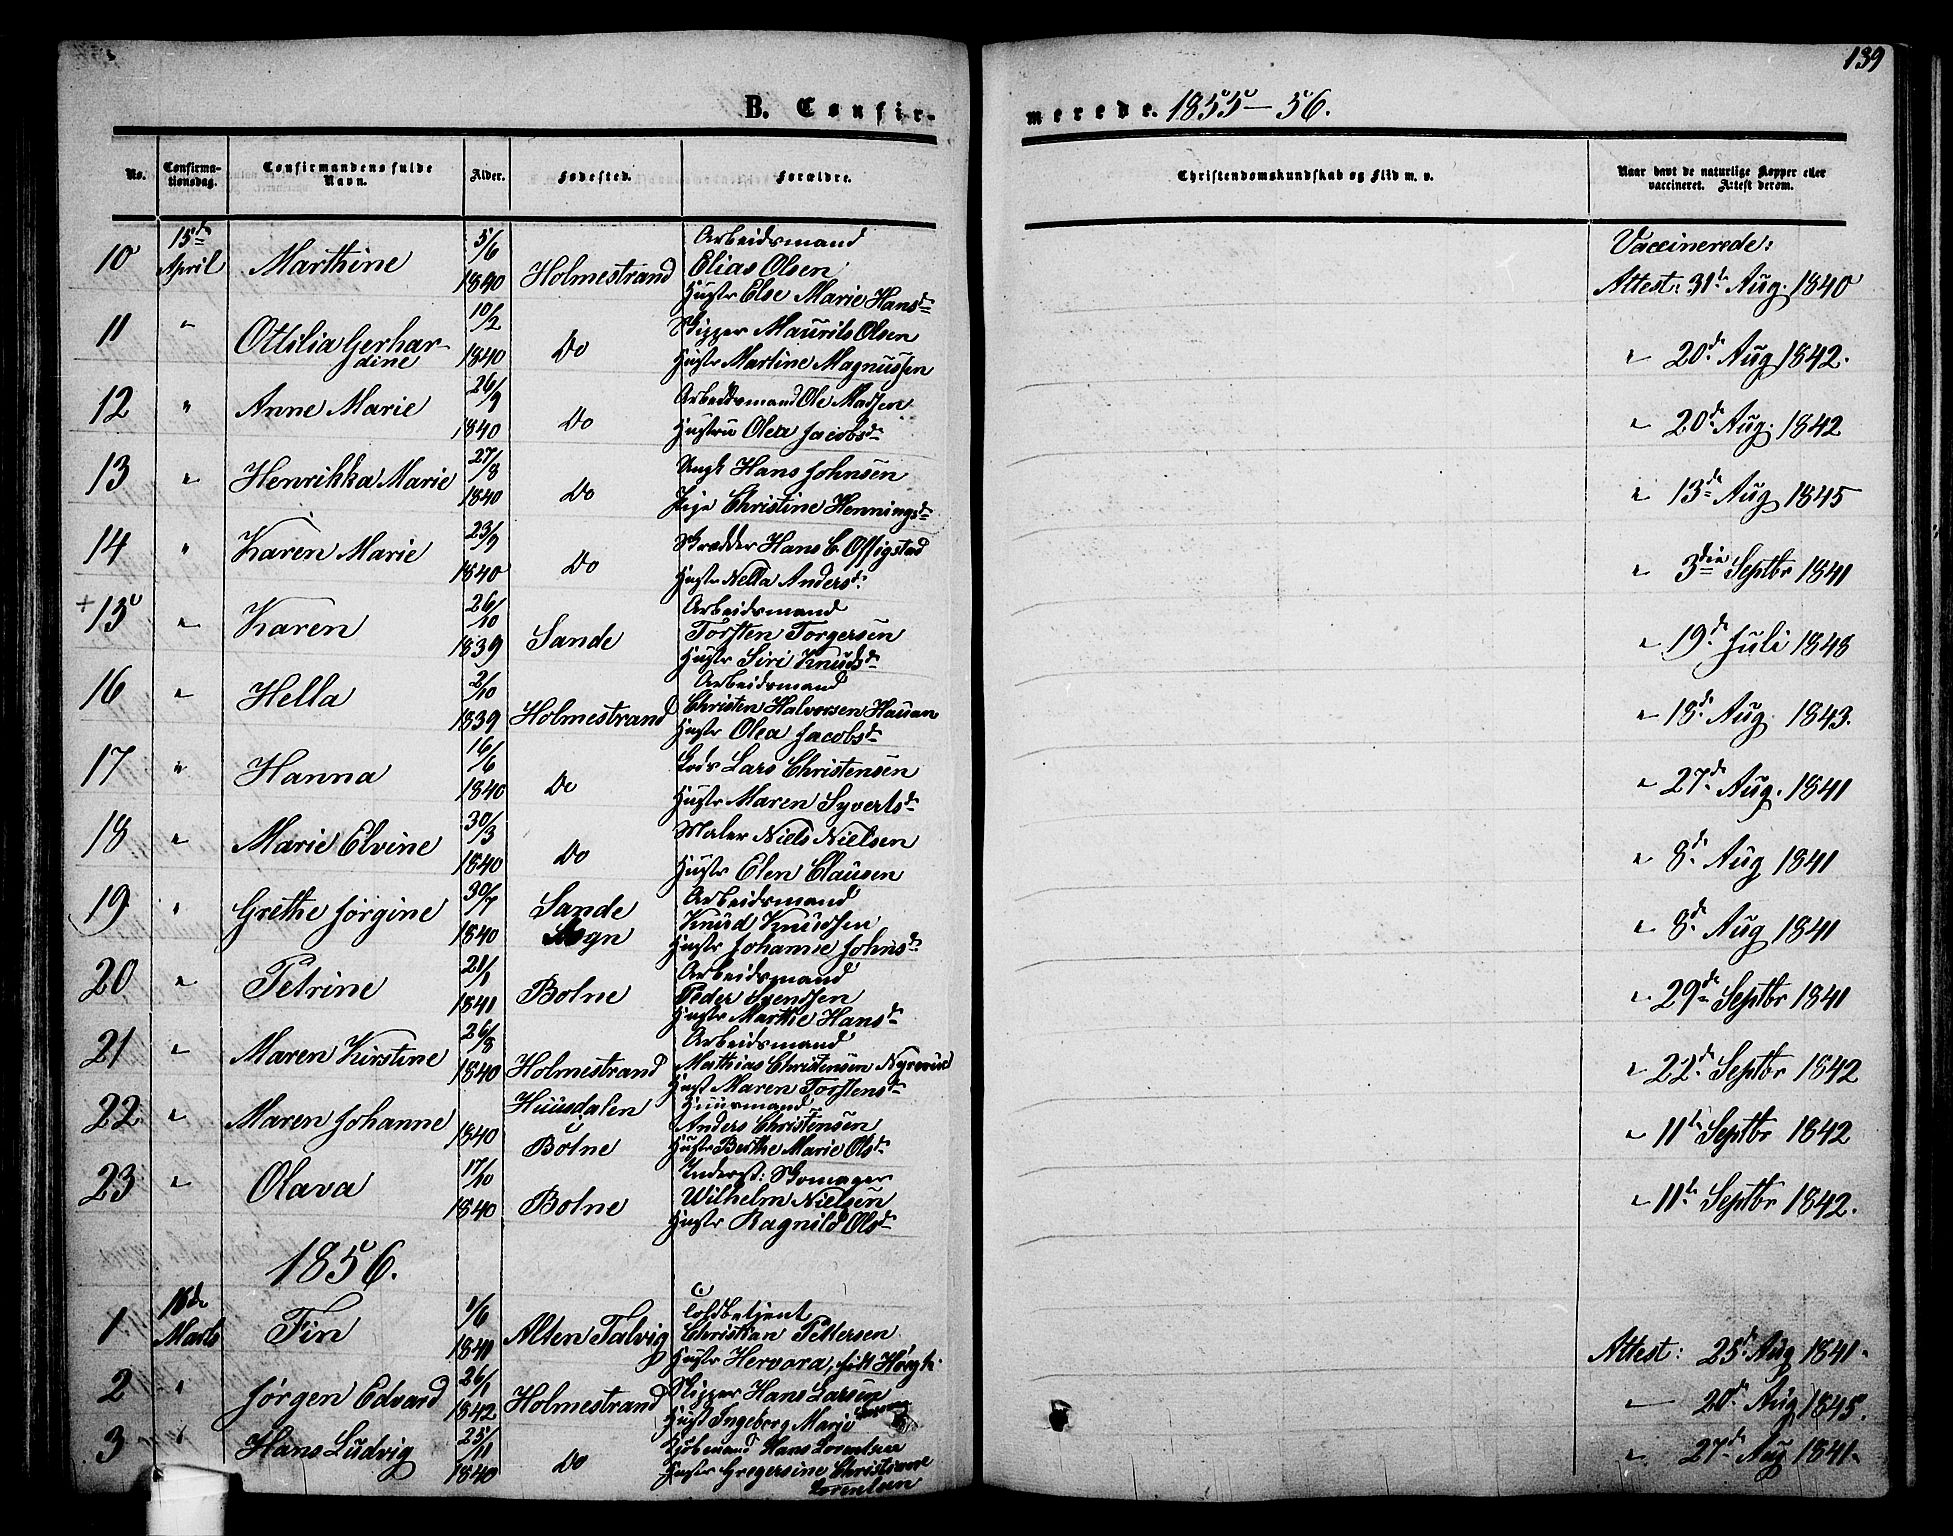 139
B. Confir-
merede. 1855-56.
No.
Confirma-
tionsdag.
Confirmandens fulde
Navn.
Alder.
Fødested.
Forældre.
Christendomskundskab og Flid m. v.
Naar havt de naturlige Kopper eller
vaccineret. Attest derom.
10 15de April Marthine 5/6 1840 Holmestrand Arbeidsmand
Elias Olsen
Hustr Else Marie Hansd.
Vaccinerede:
Attest: 31te Aug. 1840
11 " Ottilia Gerhar-
dine 10/2 1840 Do Skipper Maurits Olsen
Hustr Martine Magnussen
" 20de Aug 1842.
12 " Anne Marie 26/9 1840 Do Arbeidsmand Ole Madsen
Hustru Olea Jacobsd.
" 20de Aug. 1842
13 " Henrikka Marie 27/8 1840 Do Ungk Hans Johnsen
Pige Christine Henningsd.
" 13de Aug 1845
14 " Karen Marie 23/9 1840 Do Skrædder Hans C. Offigstad
Hustr Nella Andersd.
" 3die Septbr 1841
+ 15 " Karen 26/10 1839 Sande Arbeidsmand
Torsten Torgersen
Hustr Siri Knudsd.
" 19de Juli 1848
16 " Hella 2/10 1839 Holmestrand Arbeidsmand
Christen Halvorsen Hauan
Hustr Olea Jacobsd.
" 18de Aug. 1843.
17 " Hanna 16/6 1840 Do Lods Lars Christensen
Hustr Maren Syvertsd.
" 27de Aug. 1841
18 " Marie Elvine 30/3 1840 Do Maler Niels Nielsen
Hustr Elen Clausen
" 8de Aug 1841
19 " Grethe Jørgine 30/7 1840 Sande
Sogn Arbeidsmand
Knud Knudsen
Hustr Johanne Johnsd.
" 8de Aug 1841
20 " Petrine 21/1 1841 Botne Arbeidsmand
Peder Svendsen
Hustr Marthe Hansd.
" 29de Septbr 1841
21 " Maren Kirstine 26/8 1840 Holmestrand Arbeidsmand
Mathias Christensen Nyrerud
Hust Maren Torstensd.
" 22de Septbr 1842
22 " Maren Johanne 1840 Huusdalen
i
Botne Huusmand
Anders Christensen
Hustr Berthe Marie Olsd.
" 11te Septbr 1842
23 " Olava 17/10 1840 Botne Inderst: Skomager
Wilhelm Nielsen
Hustr Ragnild Olsd.
" 11te Septbr 1842.
1856.
1 18de Marts Fin 1/6 1841 Alten Talvig Toldbetjent
Christian Pettersen
Hustr Hervora, født Høegh.
Attest: 25de Aug 1841.
2 " Jørgen Edvard 26/1 1842 Holmestrand Skipper Hans Larsen
Hust Ingeborg Marie
" 20de Aug 1845.
3 " Hans Ludvig 25/11 1840 Do Kjøbmand Hans Lorentsen
Hustr Gregersine Christiane
Lorentsen
" 27de Aug 1841.